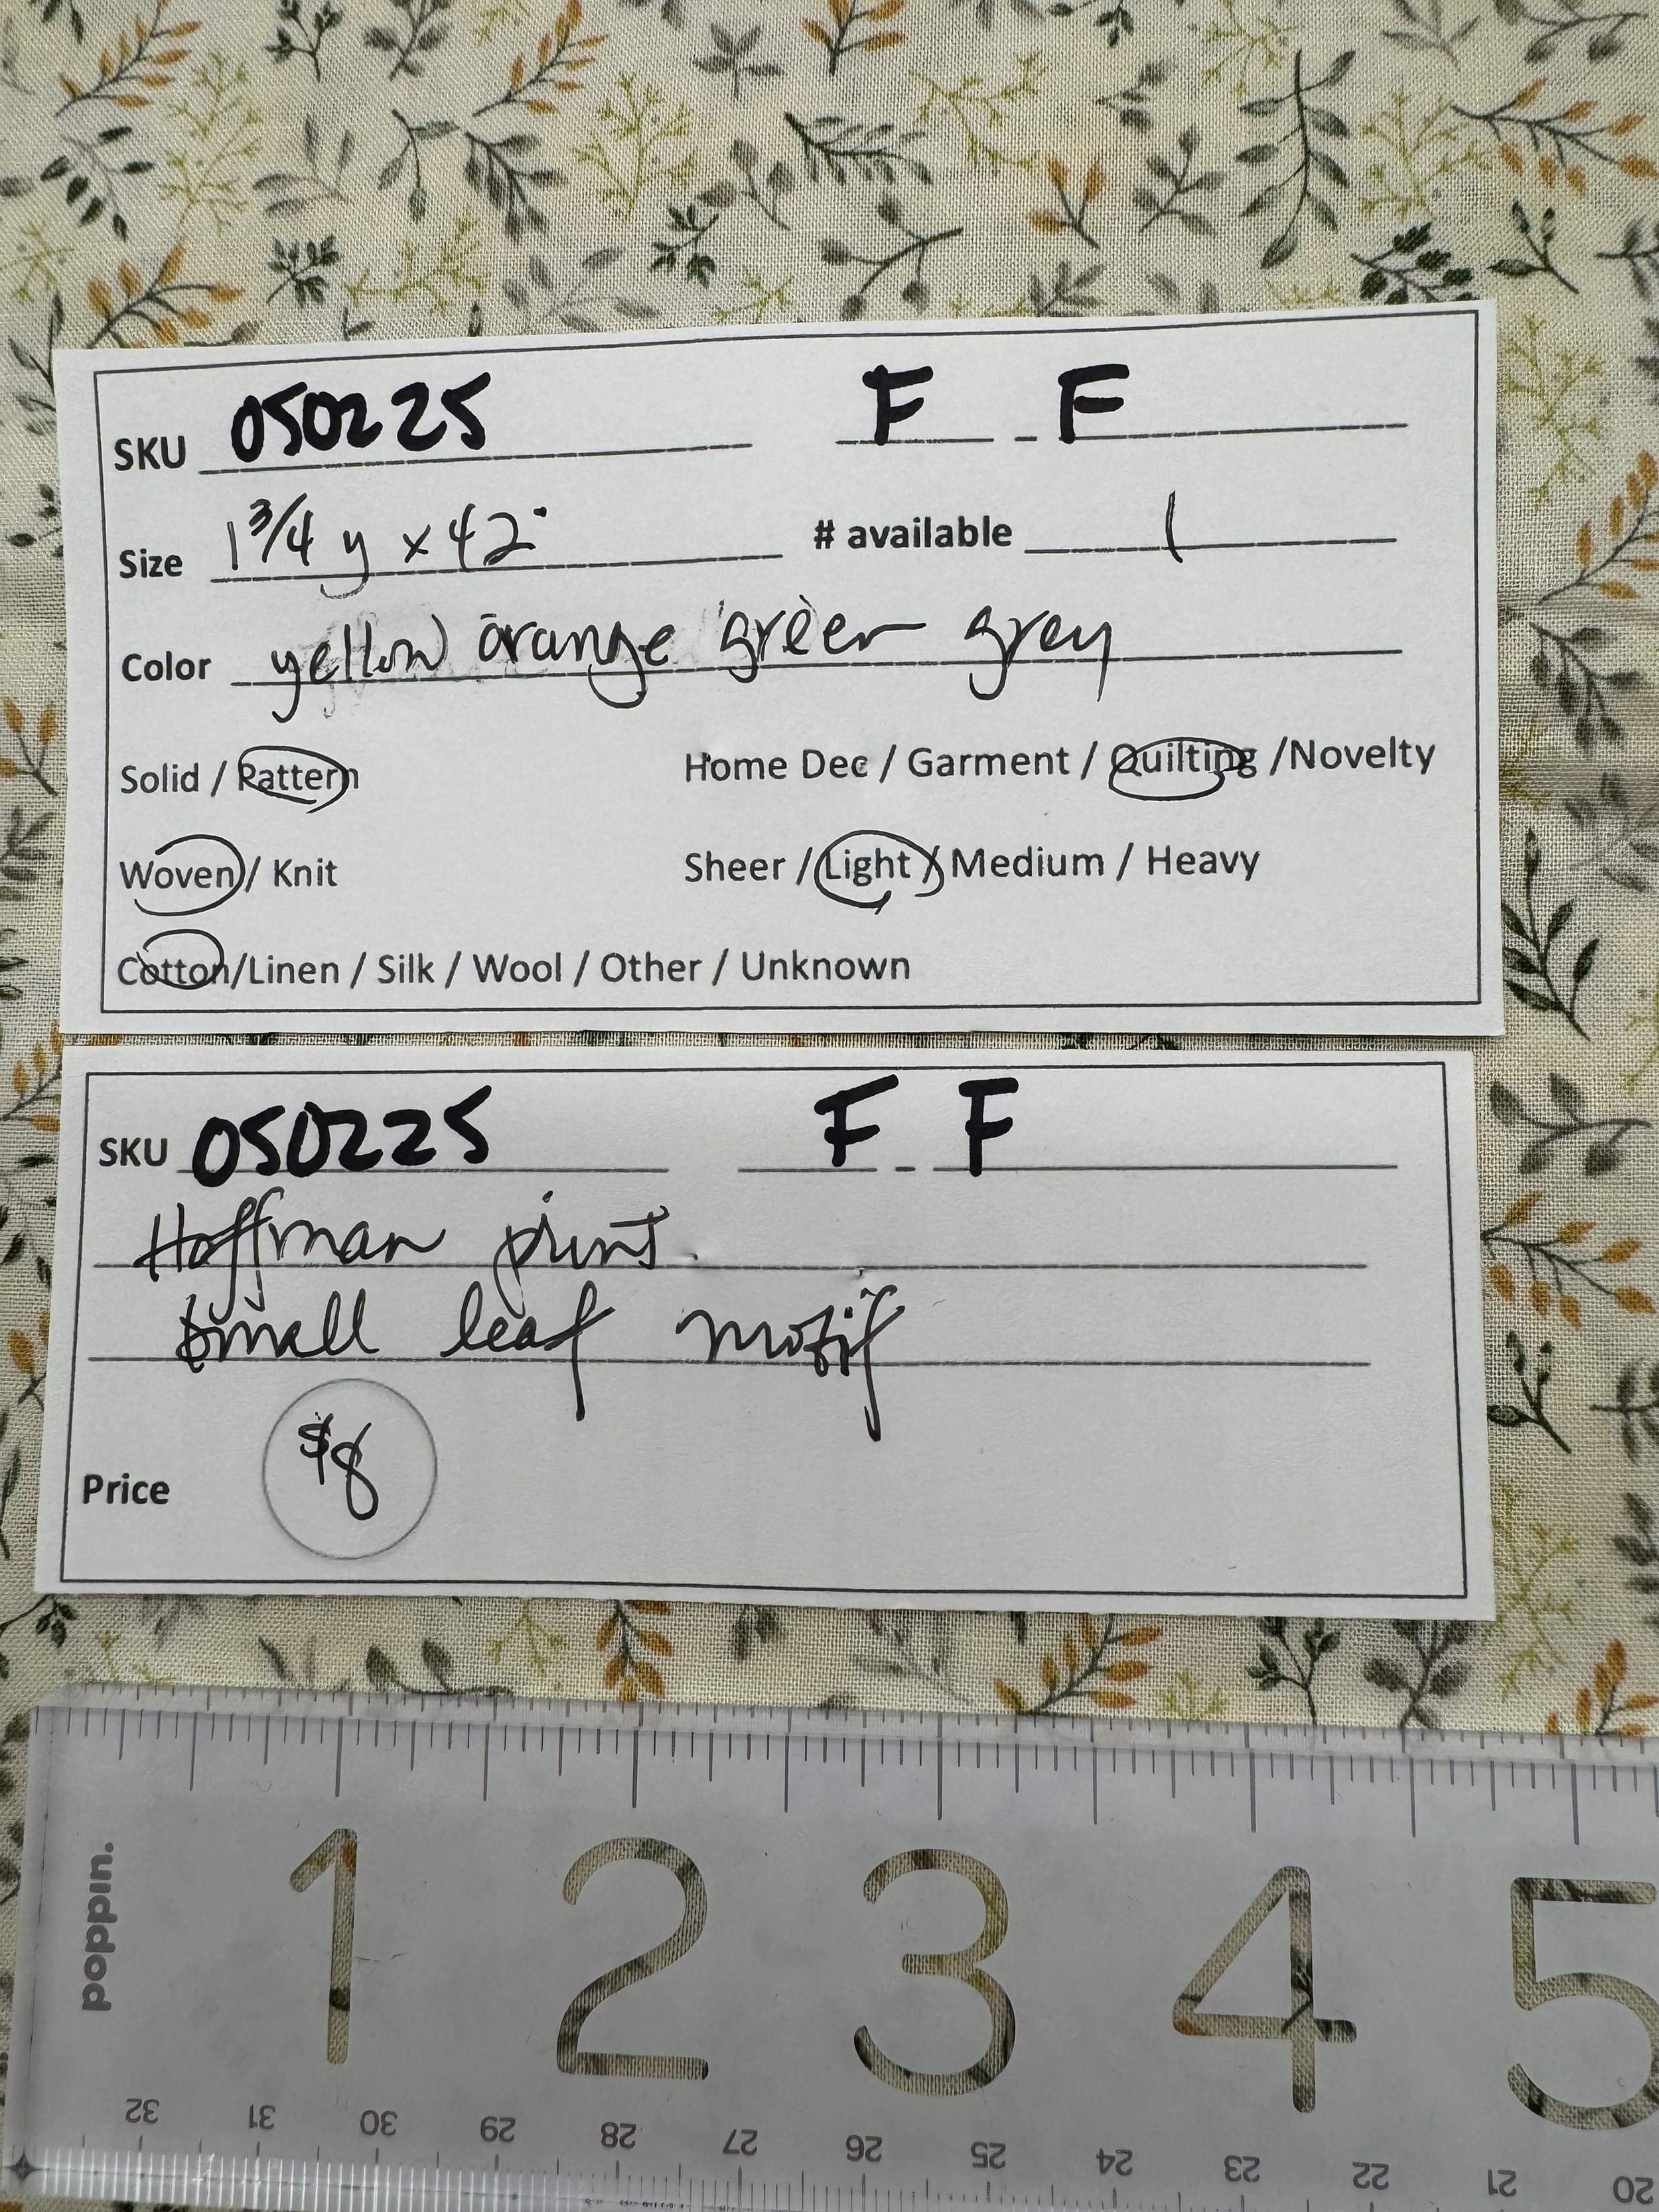 SKU 050225 F - F
Size 1 3/4 y x 42" # available 1
Color yellow orange green grey
Solid / Pattern Home Dec / Garment / Quilting /Novelty
Woven / Knit Sheer / Light / Medium / Heavy
Cotton/Linen / Silk / Wool / Other / Unknown
SKU 050225 F - F
Hoffman print
small leaf motif
Price $8
poppin.
1 2 3 4 5
32 31 30 29 28 27 26 25 24 23 22 21 20